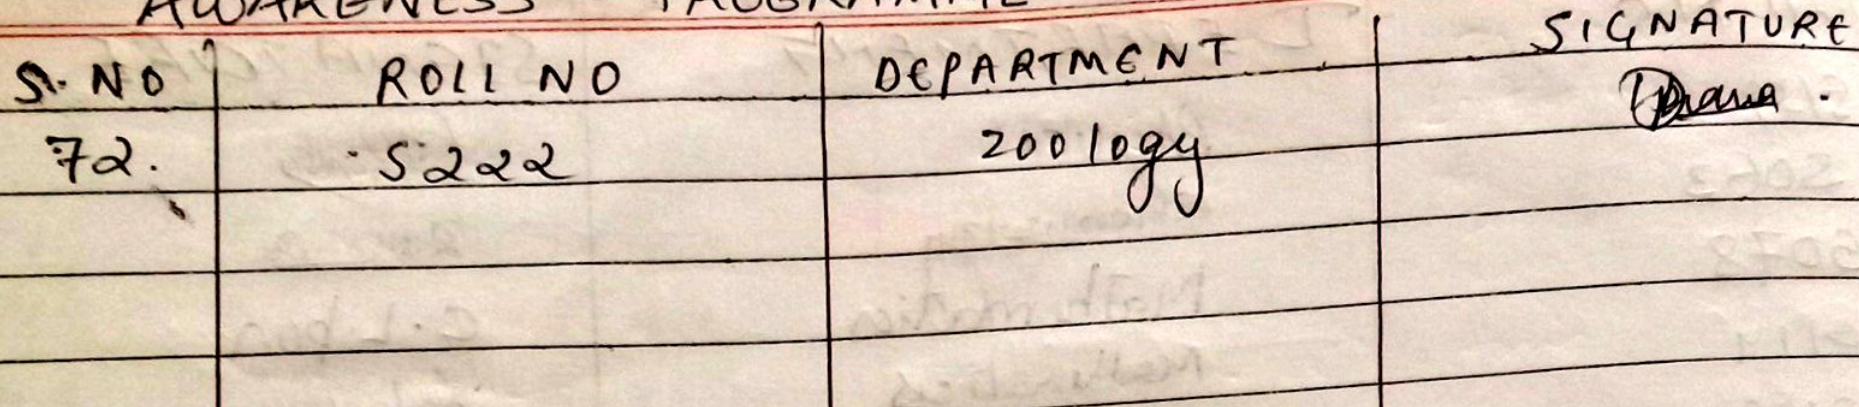 AWARENESS PROGRAMME
S. NO ROLL NO DEPARTMENT SIGNATURE
72. S222 Zoology